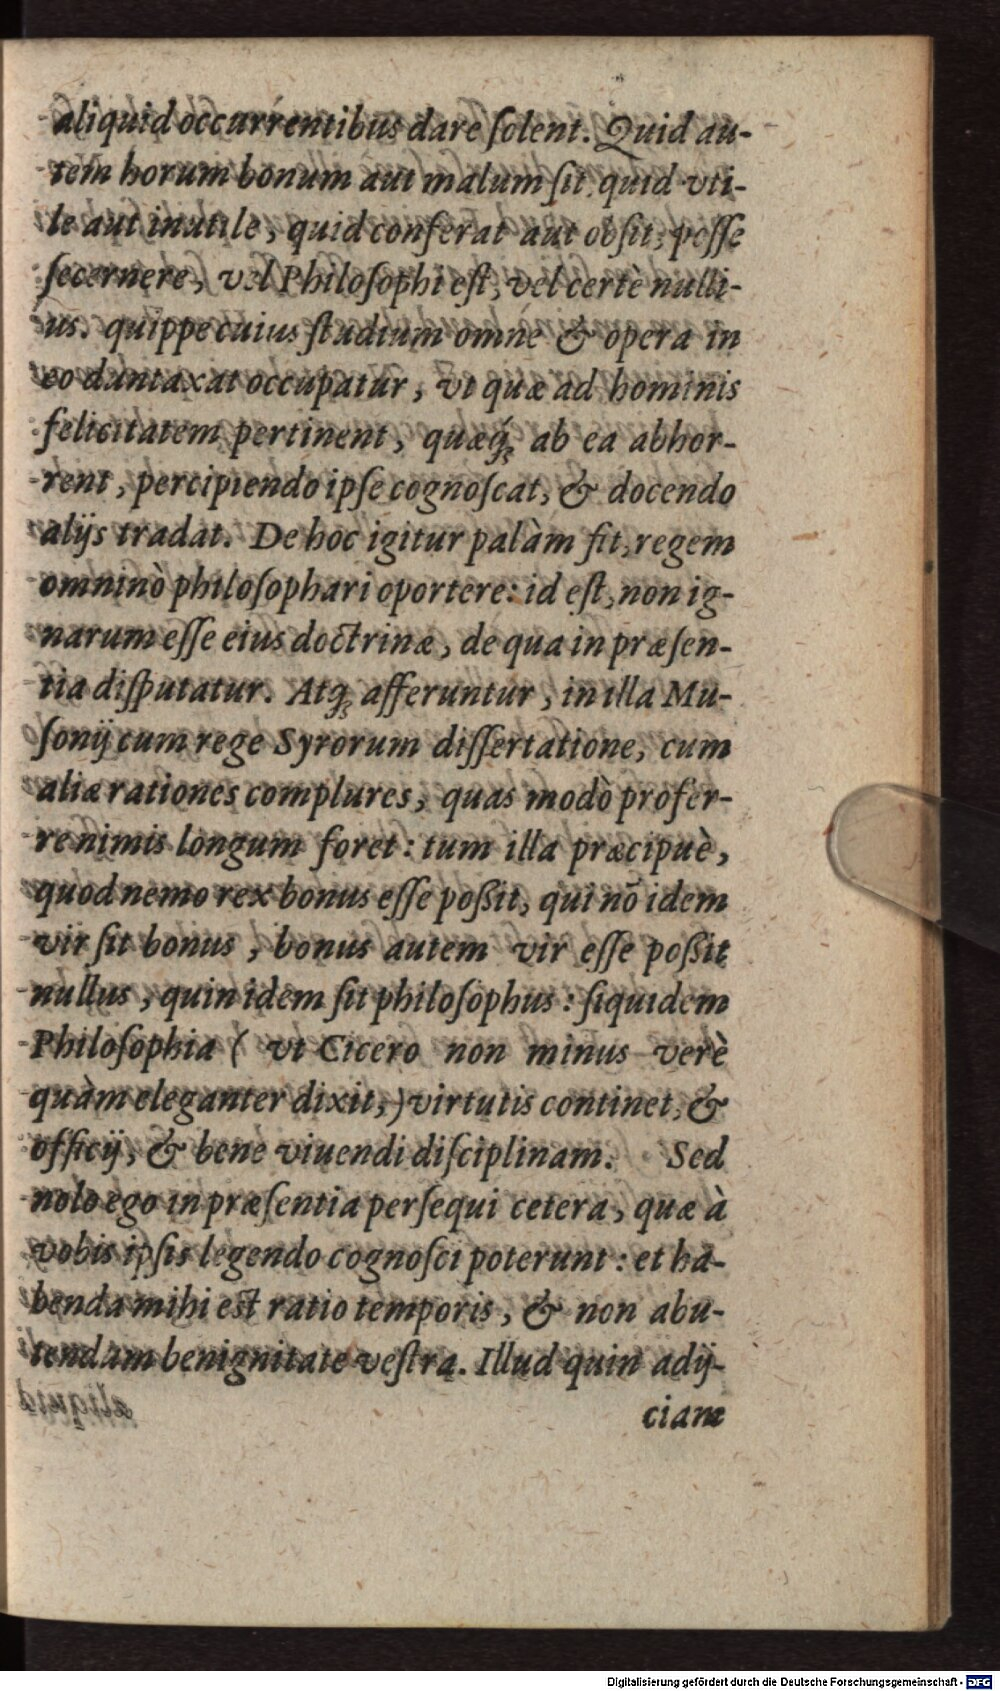 aliquid occurrentibus dare ſolent. Quid au-
tem horum bonum aut malum ſit quid vti-
le aut inutile, quid conferat aut obſit, poſſe
ſecernere, vel Philoſophi eſt, vel certè nulli-
us. quippe cuius ſtudium omne & opera in
eo duntaxat occupatur, vt quæ ad hominis
felicitatem pertinent, quæq́ꝫ ab ea abhor-
rent, percipiendo ipſe cognoſcat, & docendo
alijs tradat. De hoc igitur palàm fit, regem
omninò philoſophari oportere: id eſt, non ig-
narum eſſe eius doctrinæ, de qua in præſen-
tia diſputatur. Atqꝫ afferuntur, in illa Mu-
ſonij cum rege Syrorum diſſertatione, cum
aliæ rationes complures, quas modò profer-
re nimis longum foret: tum illa præcipuè,
quod nemo rex bonus eſſe poßit, qui nō idem
vir ſit bonus, bonus autem vir eſſe poßit
nullus, quin idem ſit philoſophus: ſiquidem
Philoſophia ( vt Cicero non minus verè
quàm eleganter dixit,) virtutis continet, &
officij, & bene viuendi diſciplinam. Sed
nolo ego in præſentia perſequi cetera, quæ à
vobis ipſis legendo cognoſci poterunt: et ha-
benda mihi est ratio temporis, & non abu-
tendam benignitate veſtra. Illud quin adij-
ciam
Digitalisierung gefördert durch die Deutsche Forschungsgemeinschaft - DFG